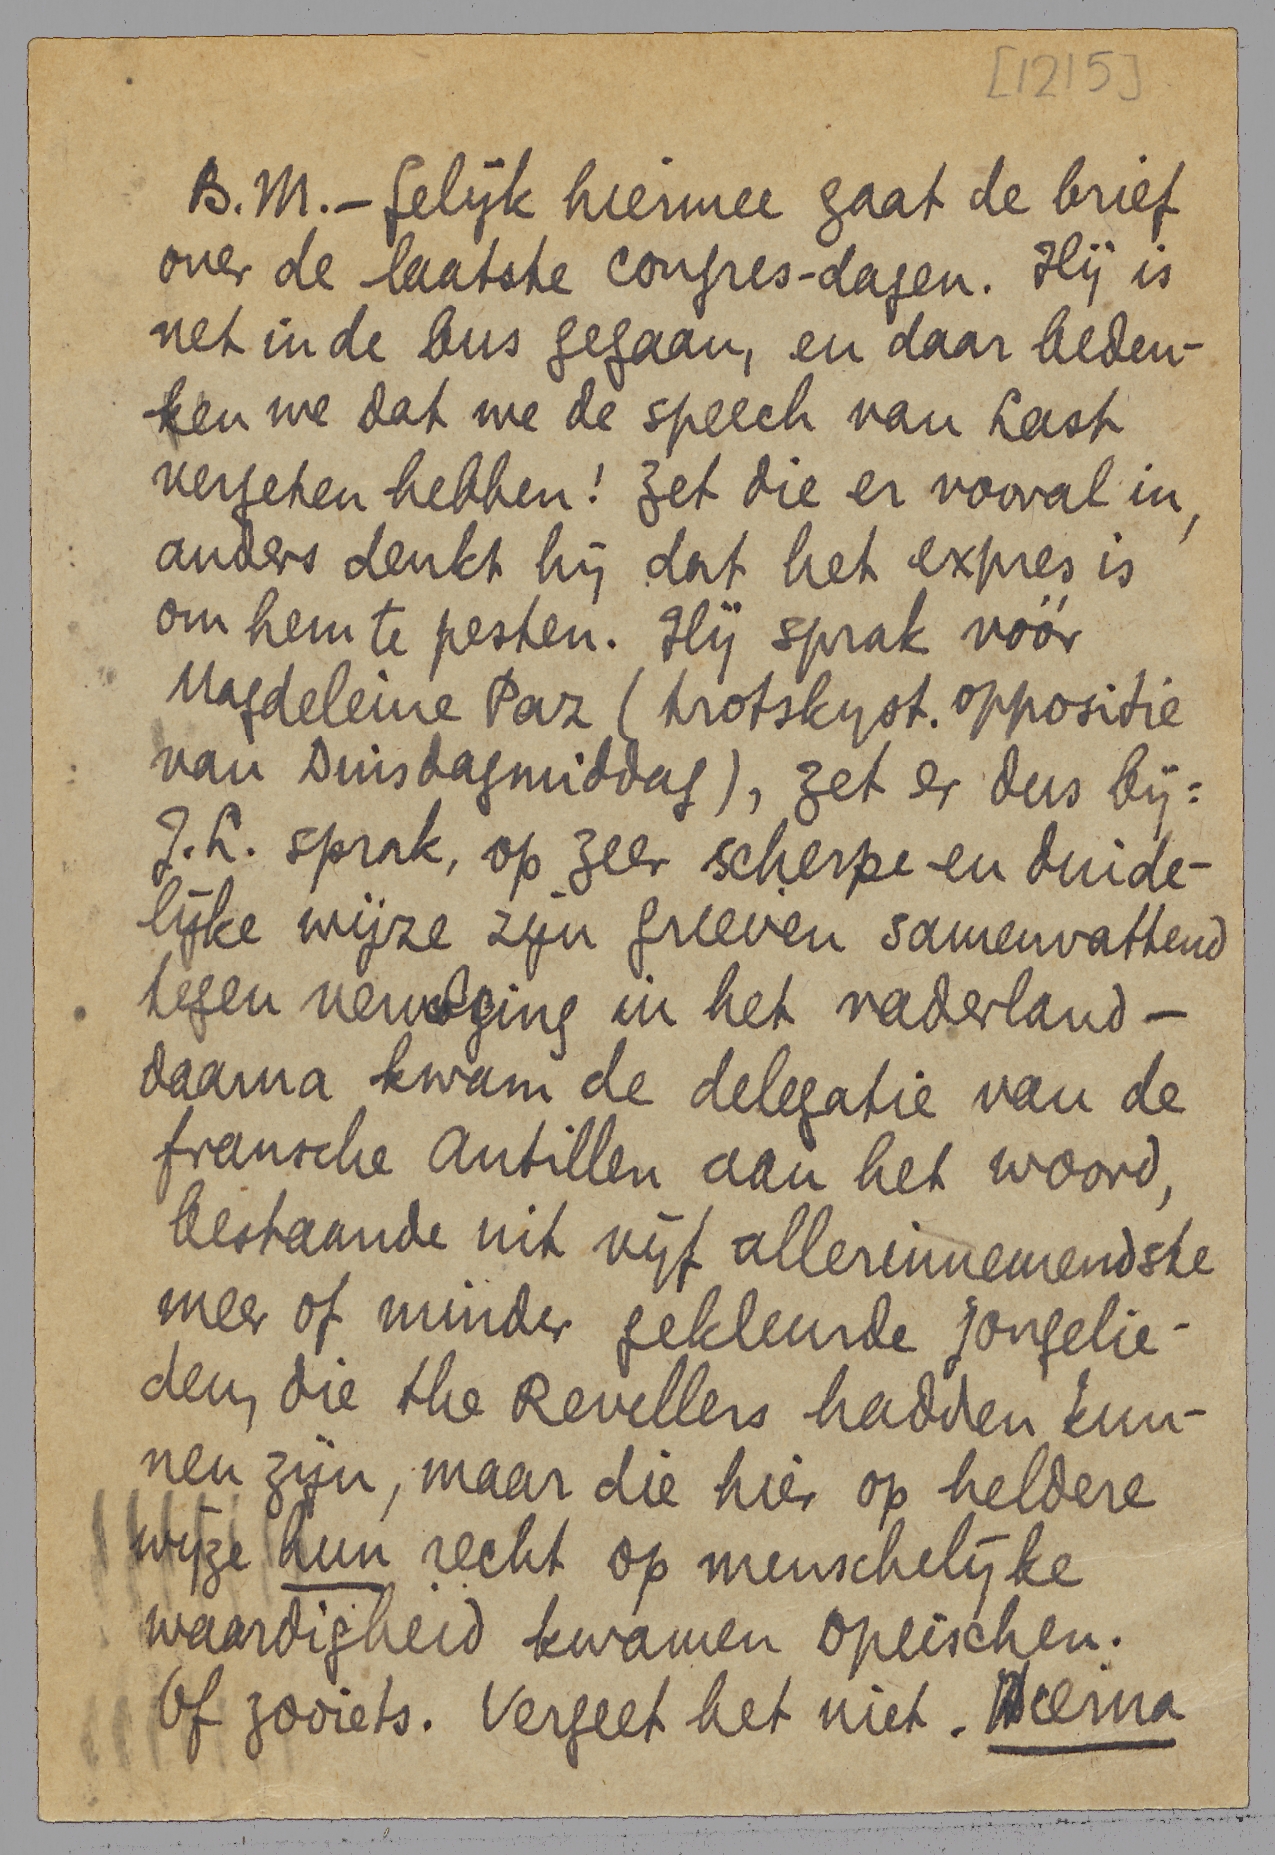 [1215]
B.M. – Gelijk hiermee gaat de brief
over de laatste congres-dagen. Hij is
net in de bus gegaan, en daar beden-
ken we dat we de speech van Last
vergeten hebben! Zet die er vooral in,
anders denkt hij dat het expres is
om hem te pesten. Hij sprak vóór
Magdeleine Paz (trotskyst. oppositie
van Dinsdagmiddag), zet er dus bij:
J.L. sprak, op zeer scherpe en duide-
lijke wijze zijn grieven samenvattend
tegen vervolging in het vaderland –
daarna kwam de delegatie van de
fransche Antillen aan het woord,
bestaande uit vijf allerinnemendste
meer of minder gekleurde jongelie-
den, die the Revellers hadden kun-
nen zijn, maar die hier op heldere
wijze hun recht op menschelijke
waardigheid kwamen opeischen.
Of zooiets. Vergeet het niet.